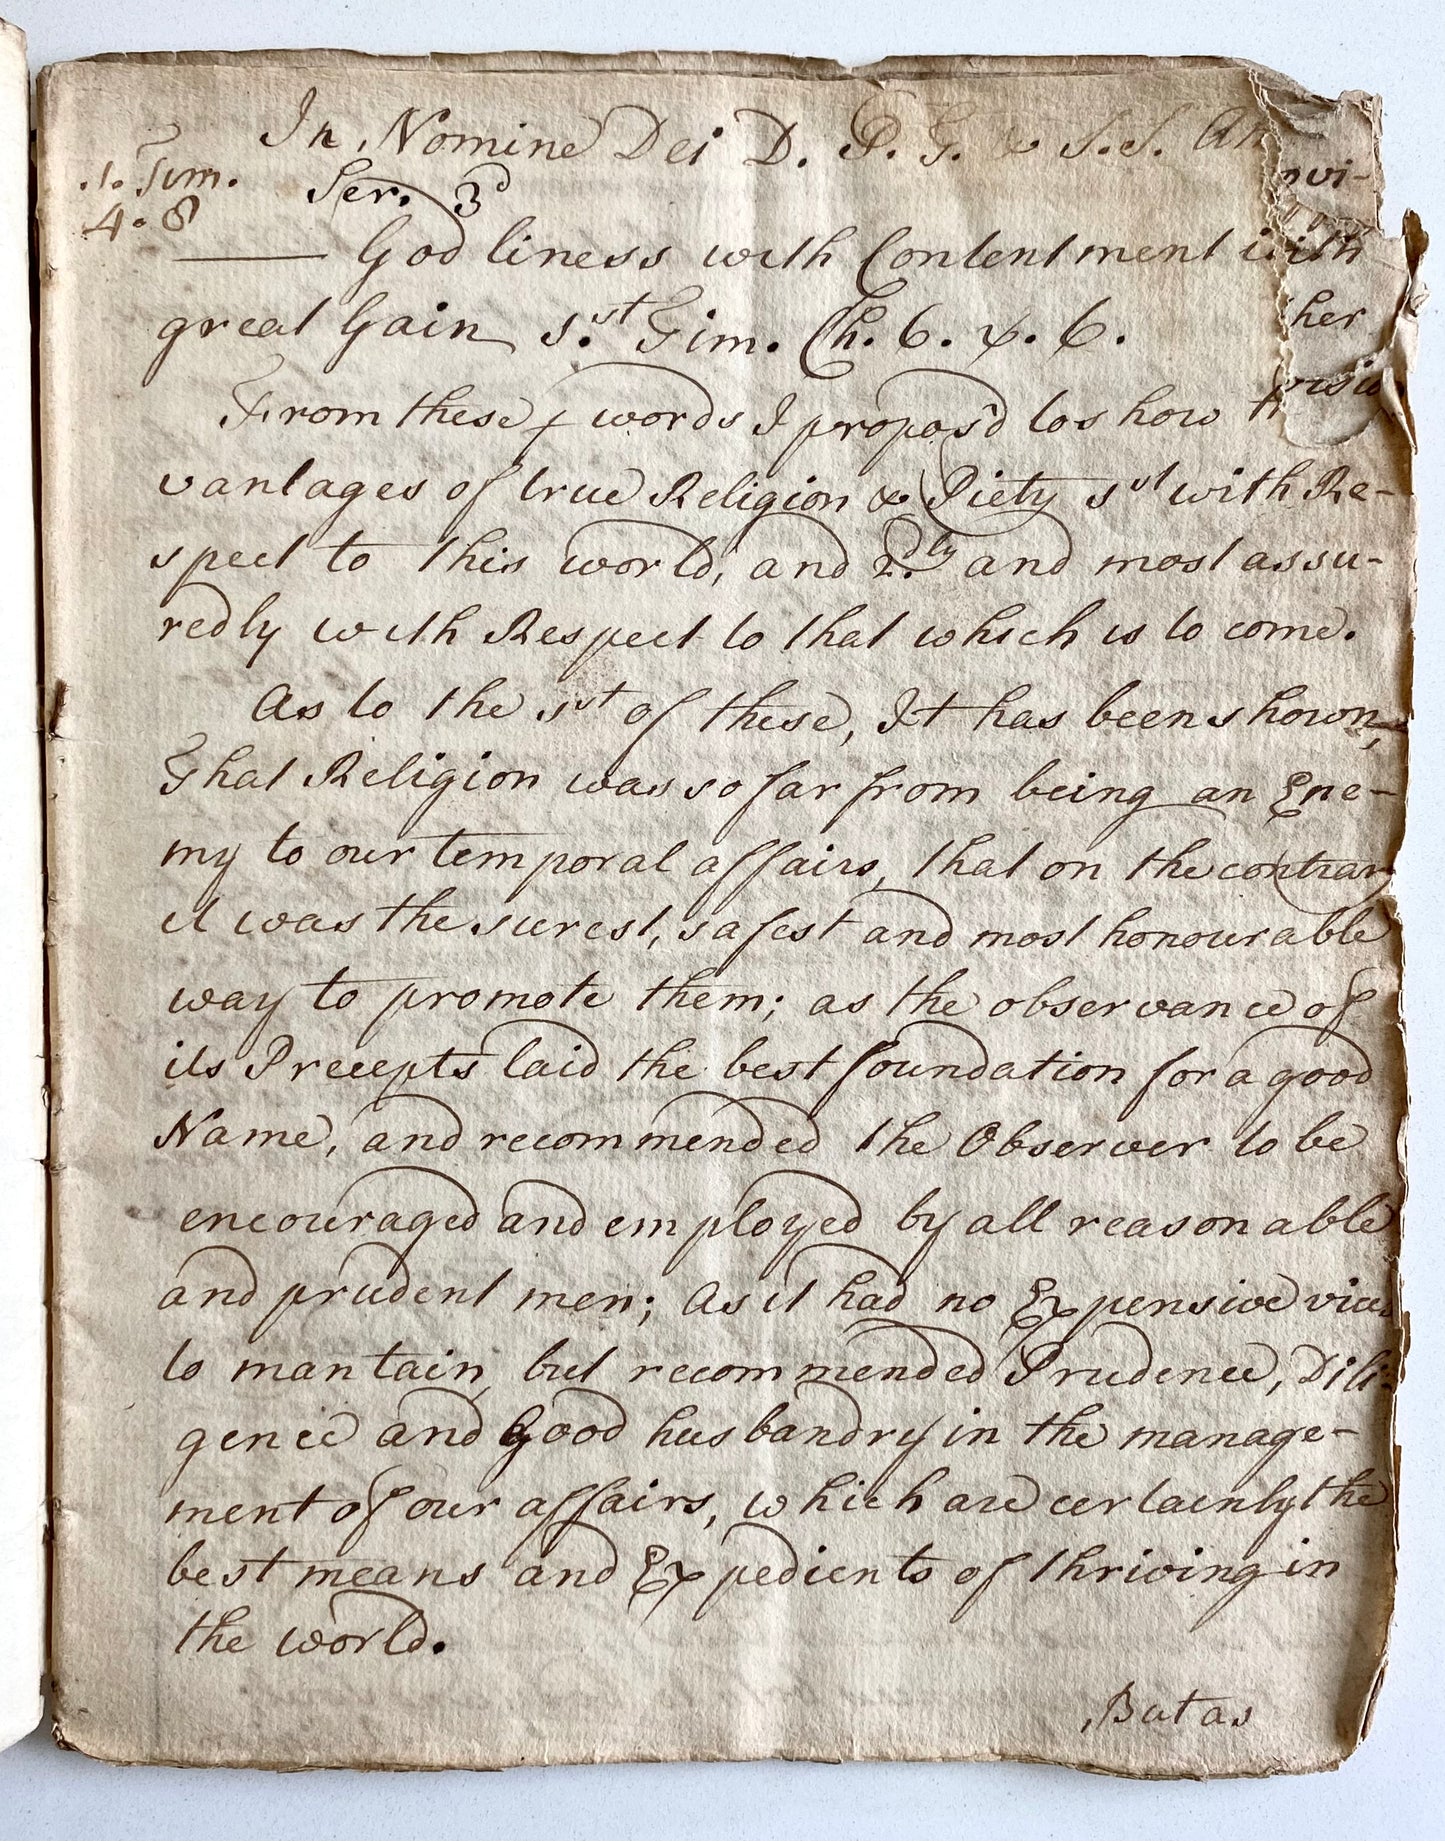 In Nomine Dei D. P. F. & S. S. Am
1. Tim.
4. 8
Ser. 3d
—— Godliness with Contentment with
great Gain 1.st Tim. Ch. 6. v. 6.
From these words I propos'd to show
vantages of true Religion & Piety 1st with Re-
spect to this world, and 2.dly and most assu-
redly with Respect to that which is to come.
As to the 1st of these, It has been shown,
That Religion was so far from being an Ene-
my to our temporal affairs, that on the contrary
it was the surest, safest and most honourable
way to promote them; as the observance of
its Precepts laid the best foundation for a good
Name, and recommended the Observer to be
encouraged and employed by all reasonable
and prudent men; As it had no Expensive
to mantain, but recommended Prudence, Dili-
gence and Good husbandry in the manage-
ment of our affairs, which are certainly the
best means and Expedients of thriving in
the world.
But as